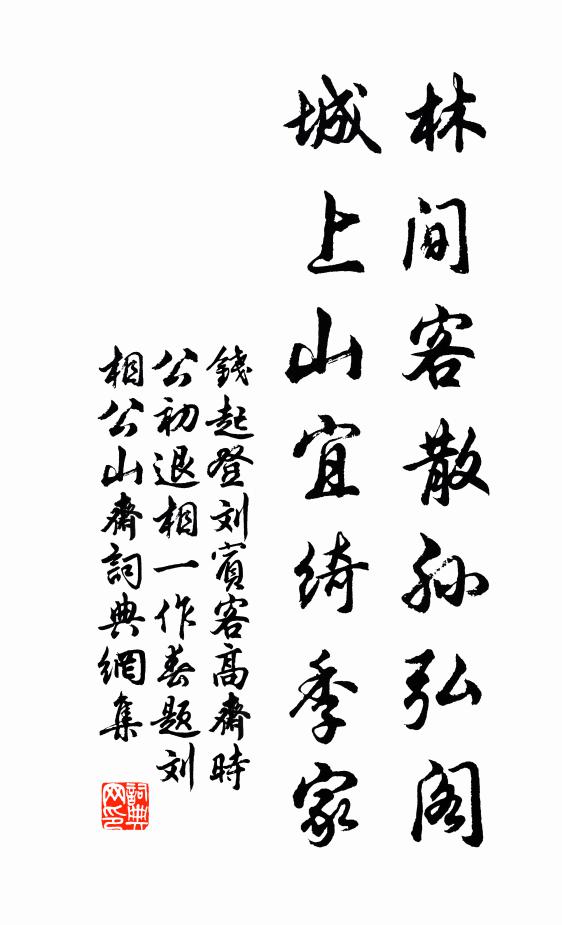 林间客散孙弘阁
城上山宜绮季家
錢起登刘賓客高齋時
公初退相一作春題刘
相公山齋詞典網集
詞典网印